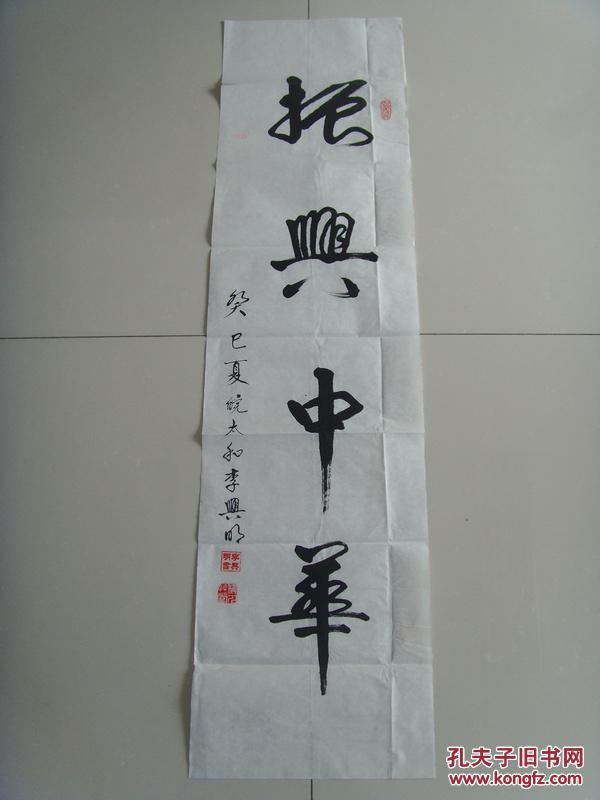 振興中華
癸巳夏皖太和李興明
孔夫子旧书网
www.kongfz.com